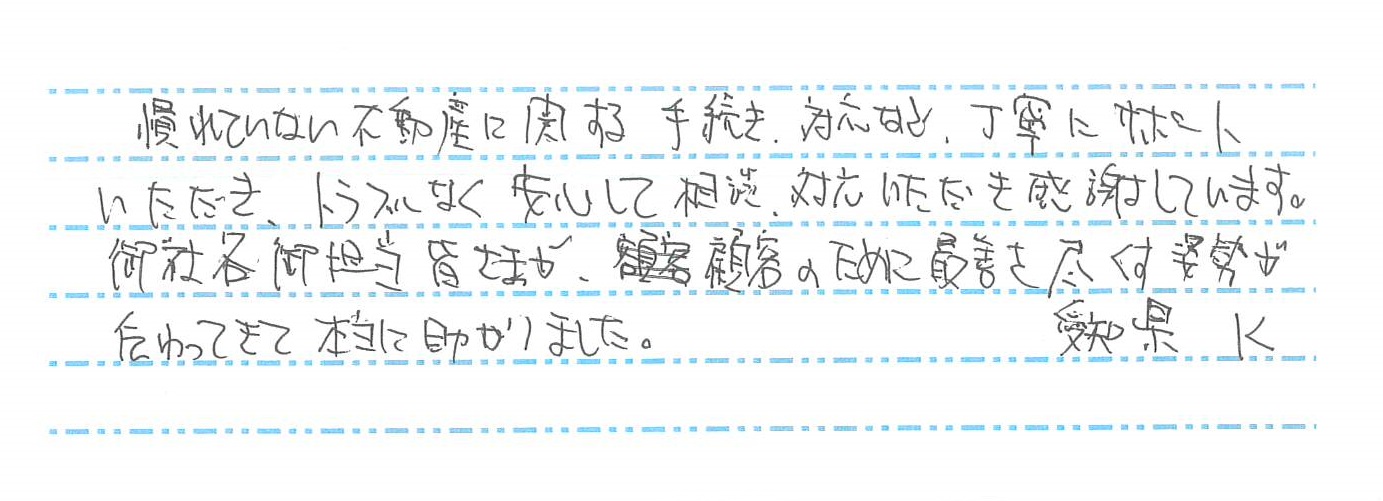 慣れていない不動産に関する手続き、対応など、丁寧にサポート
いただき、トラブルなく安心して相談、対応いただき感謝しています。
御社各御担当皆さまが、顧客のために最善を尽くす姿勢が
伝わってきて本当に助かりました。 愛知県 K